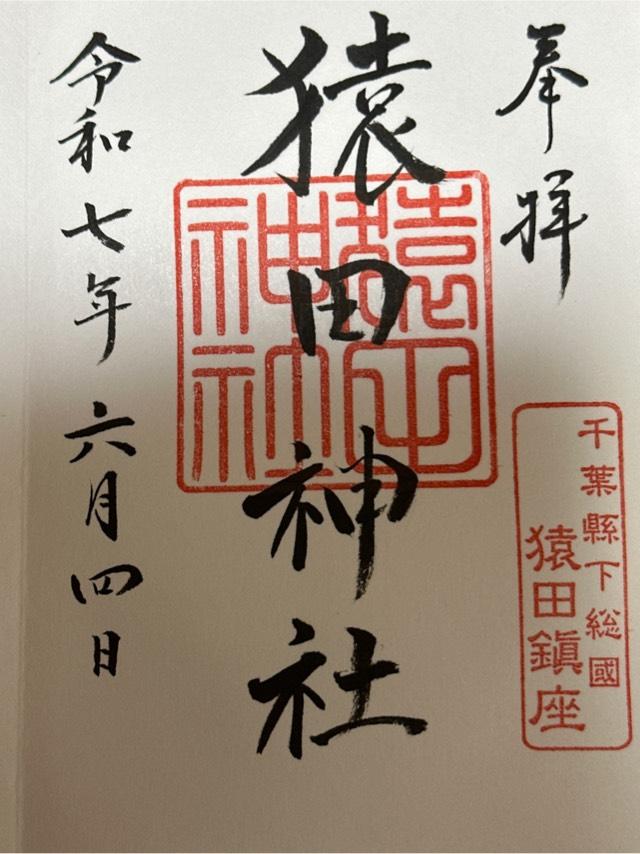 奉拝
千葉縣下総國
猿田鎭座
猿田神社
猿田
神社
令和七年六月四日